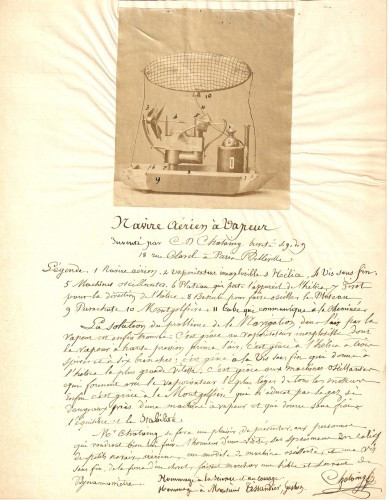 10
9
Navire Aérien à Vapeur
Inventé par C D Chataing breveté s.g.d.g
18 rue Clavel à Paris Belleville
Légende. 1 Navire aérien. 2 vaporisateur inexplosible 3 Hélice. 4 Vis sans fin.
5 Machines oscillantes. 6 Plateau qui porte l'appareil de l'hélice 7 Pivot
pour la direction de l'hélice 8 Bascule pour faire osciller le Plateau
9 Parachute 10 Montgolfière 11 tube qui communique à la Cheminée
La solution du problème de la Navigation dans l'air par la
Vapeur est enfin trouvée. C'est grâce au vaporisateur inexplosible dont
la vapeur à haute pression. C'est grâce à l'hélice à
spires et à dix branches; c'est grâce à la Vis sans fin qui donne à
l'hélice la plus grande vitesse. C'est grâce aux machines oscillantes
qui forment avec le vaporisateur le plus léger de tous les moteurs
enfin c'est grâce à la Montgolfière qui n'admet pas le gaz si
dangereux près d'une machine à vapeur et qui donne sans
l'équilibre et la Stabilité
Mr Chataing se fera un plaisir de présenter aux personnes
qui voudront bien lui faire l'honneur d'une visite, ses spécimens
de petits navires aériens, un modèle de machine oscillante, et une vis
sans fin, de la force d'un cheval, faisant marcher une hélice et servant de
Dynamomètre
Hommage à la science et au courage
Hommage à Monsieur Tissandier, Gaston
Chataing